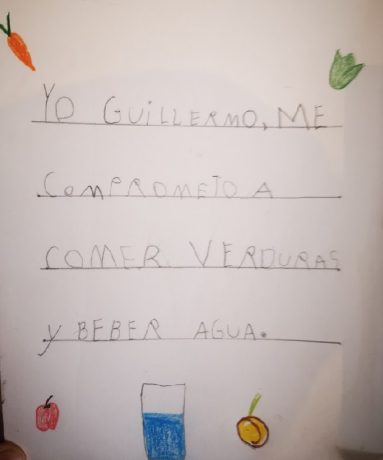 YO GUiLLERMO, ME
COMPROMETO A
COMER VERDURAS
y BEBER AGUA.